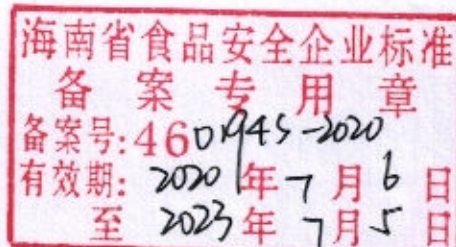 海南省食品安全企业标准
备案专用章
备案号:460194S-2020
有效期: 2020年7月6日
至 2023年7月5日